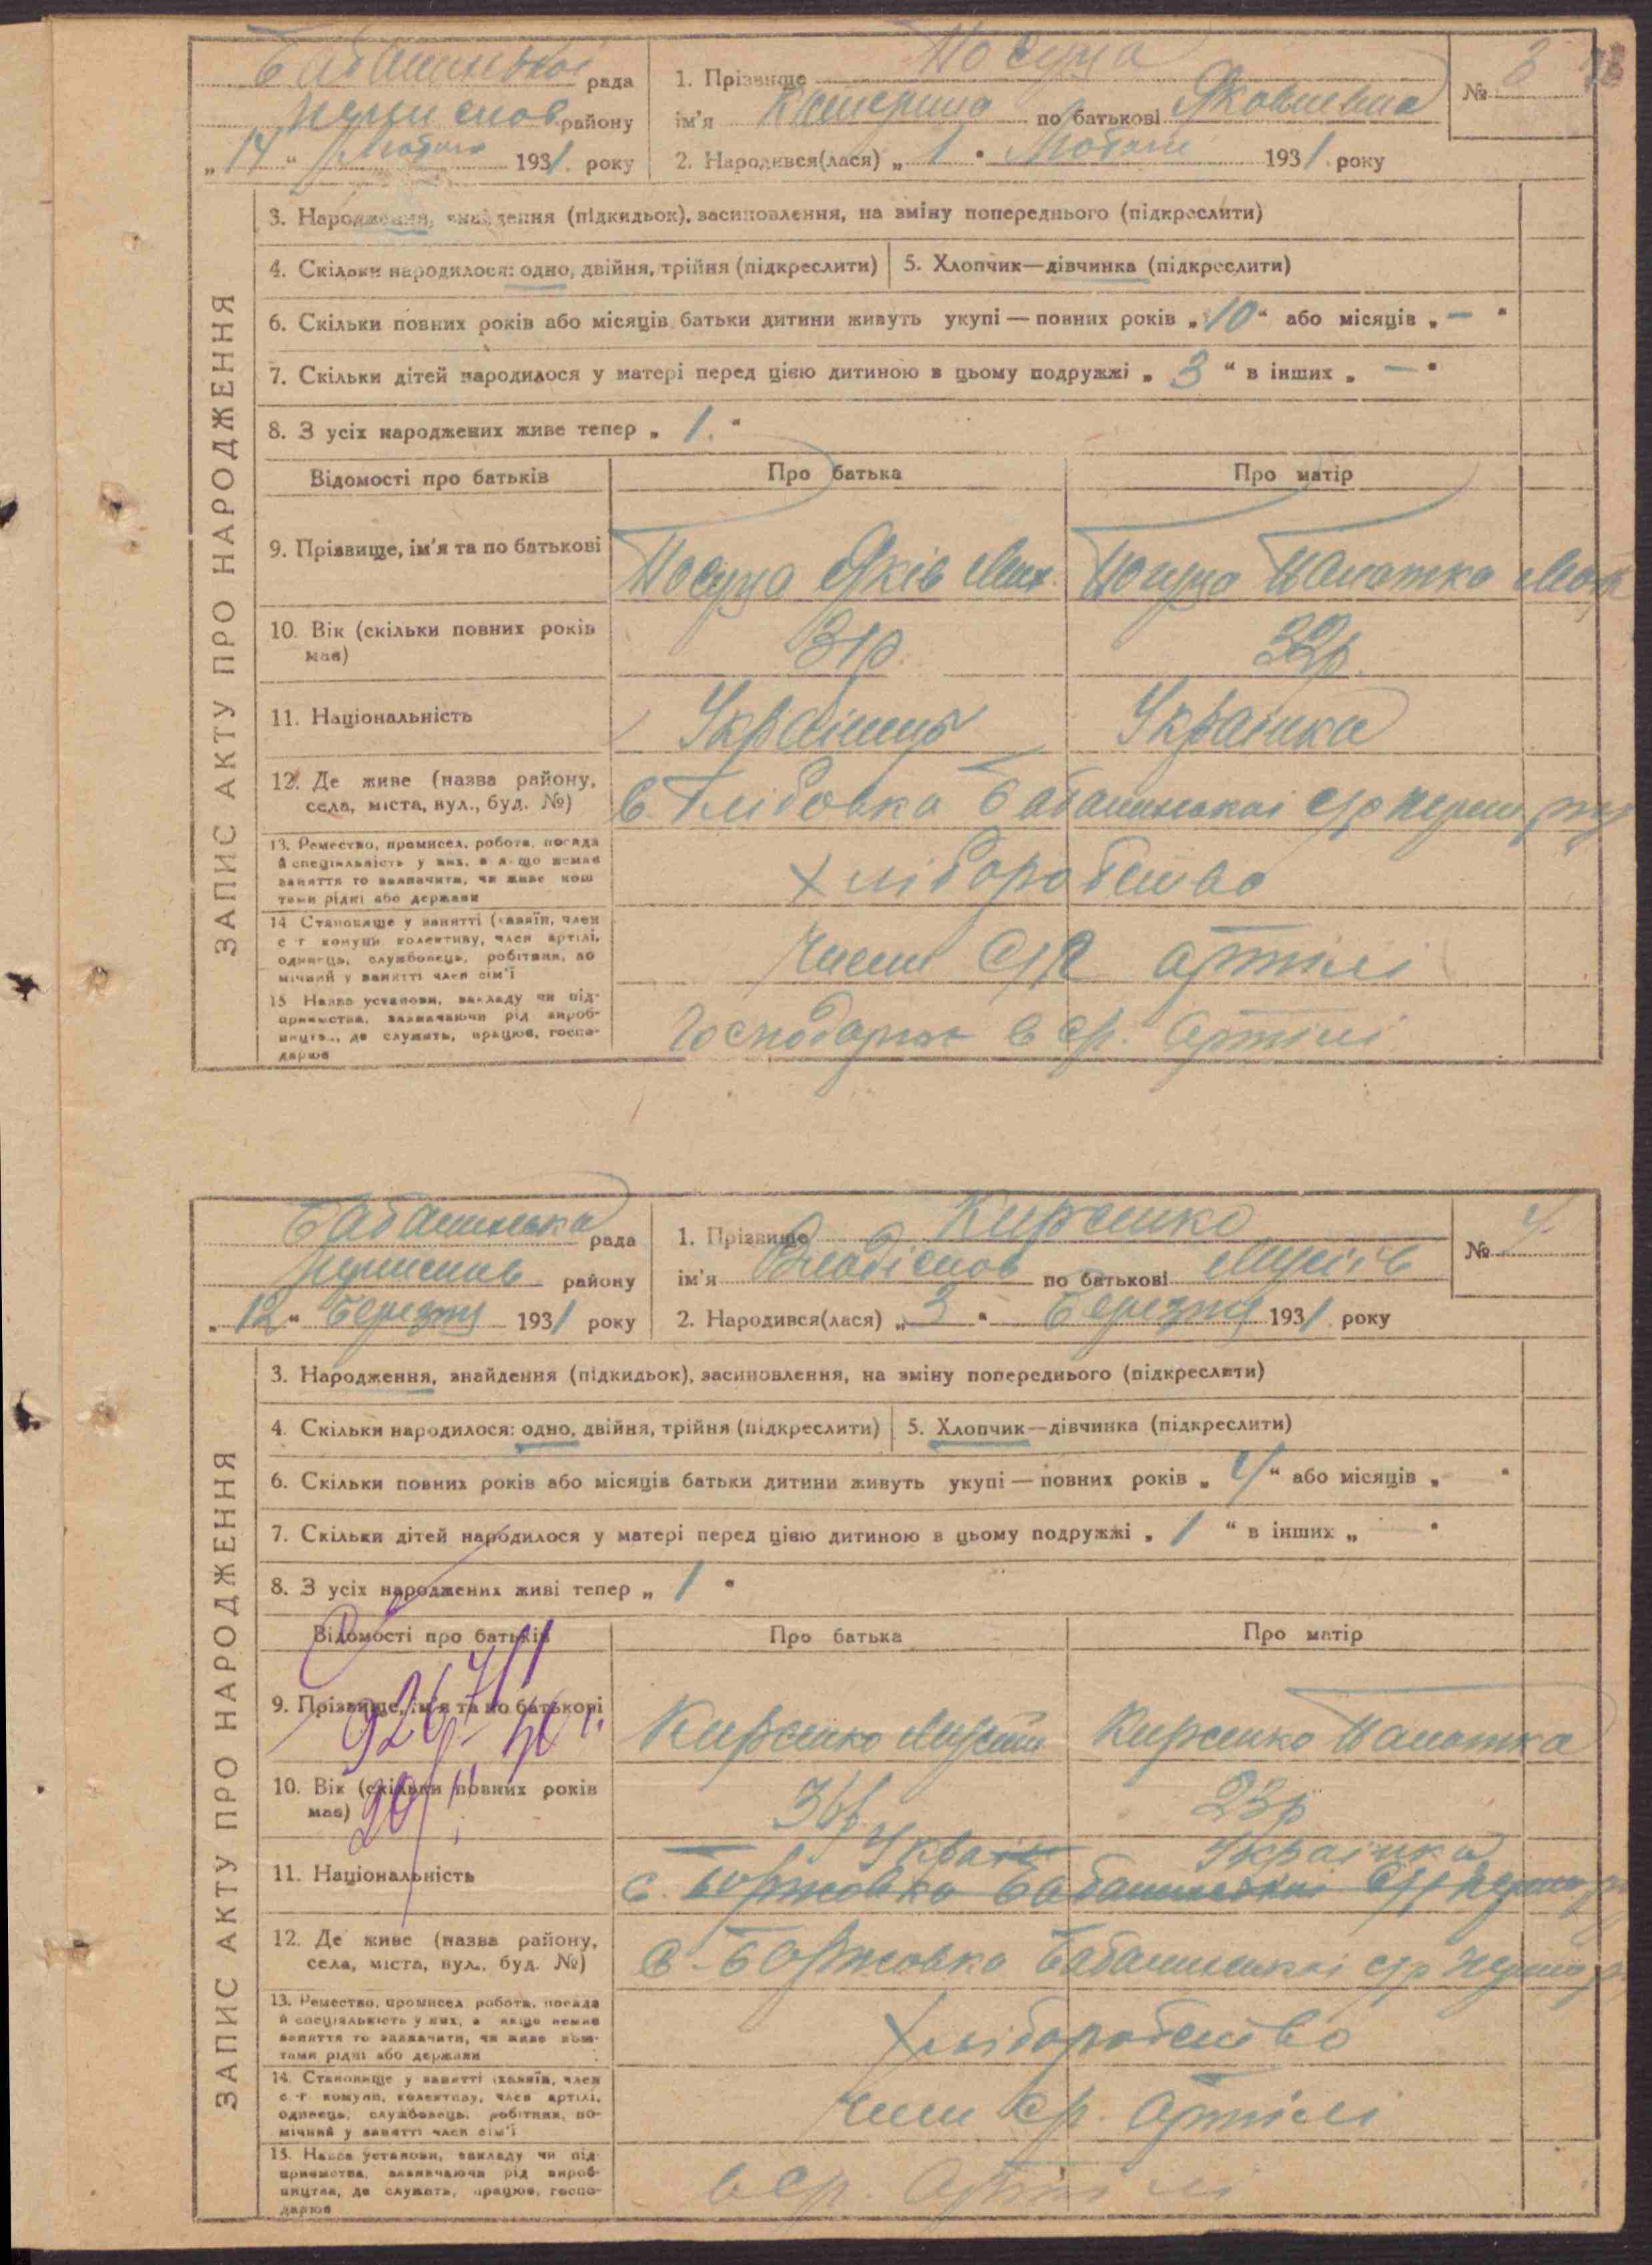 Бабашинської рада
1. Прізвище Посуда
№ 3
району
ім'я Катерина по батькові Яковлевна
„14“ Лютого 1931 року
2. Народився(лася) „1“ Лютого 1931 року
ЗАПИС АКТУ ПРО НАРОДЖЕННЯ
3. Народження, знайдення (підкидьок), засиновлення, на зміну попереднього (підкреслити)
4. Скільки народилося: одно, двійня, трійня (підкреслити)
5. Хлопчик—дівчинка (підкреслити)
6. Скільки повних років або місяців батьки дитини живуть укупі — повних років „10“ або місяців „—“
7. Скільки дітей народилося у матері перед цією дитиною в цьому подружжі „3“ в інших „—“
8. З усіх народжених живе тепер „1.“
Відомості про батьків
Про батька
Про матір
9. Прізвище, ім'я та по батькові
Яків Мих.
10. Вік (скільки повних років має)
31р.
32р.
11. Національність
Українець
Українка
12. Де живе (назва району, села, міста, вул., буд. №)
Бабашинської с/р
13. Ремество, промисел, робота, посада й спеціяльність у них, а якщо немає заняття то зазначити, чи живе коштами рідні або держави
Хліборобство
14 Становище у занятті (хазяїн, член с г комуни колективу, член артілі, одинець, службовець, робітник, помічний у занятті член сім'ї
Член С/Г артілі
15 Назва установи, закладу чи підприємства, зазначаючи рід виробництва, де служить, працює, господарює
артілі
Бабашинська рада
1. Прізвище Киренко
№ 4.
району
ім'я по батькові Мусіїв
„12“ Березня 1931 року
2. Народився(лася) „3“ Березня 1931 року
ЗАПИС АКТУ ПРО НАРОДЖЕННЯ
3. Народження, знайдення (підкидьок), засиновлення, на зміну попереднього (підкреслити)
4. Скільки народилося: одно, двійня, трійня (підкреслити)
5. Хлопчик—дівчинка (підкреслити)
6. Скільки повних років або місяців батьки дитини живуть укупі — повних років „4“ або місяців „ “
7. Скільки дітей народилося у матері перед цією дитиною в цьому подружжі „1“ в інших „ “
8. З усіх народжених живі тепер „1“
Відомості про батьків
Про батька
Про матір
9. Прізвище, ім'я та по батькові
Киренко Мусій
Киренко
10. Вік (скільки повних років має)
23р
11. Національність
Україн
Українка
12. Де живе (назва району, села, міста, вул., буд. №)
с. Боржовка Бабашинської с/р
13. Ремество, промисел робота, посада й спеціяльність у них, а якщо немає заняття то зазначити, чи живе коштами рідні або держави
Хліборобство
14. Становище у занятті (хазяїн, член с -г комуни, колективу, член артілі, одинець, службовець, робітник, помічний у занятті член сім'ї
Член ср. Артілі
15. Назва установи, закладу чи підприємства, зазначаючи рід виробництва, де служить, працює, господарює
в ср. Артілі